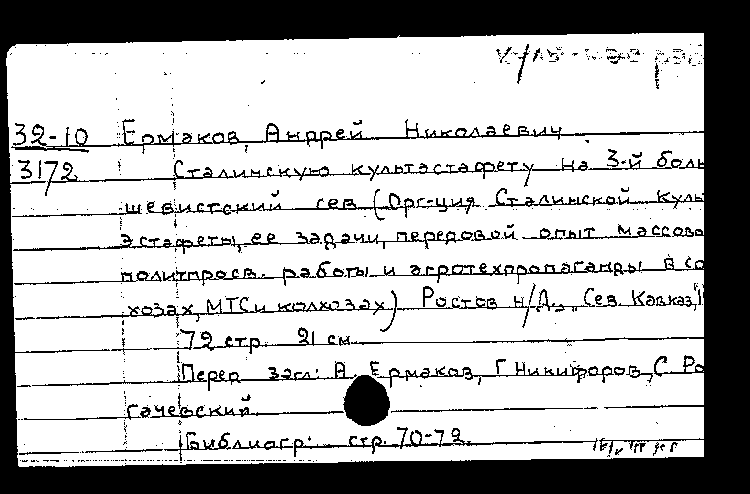 32-10 Ермаков, Андрей Николаевич
3172 Сталинскую культэстафету на 3-й боль
шевистский сев (Орг-ция Сталинской куль
эстафеты, ее задачи, передовой опыт массово
политпросв. работы и агротехпропаганды в со
хозах, МТС и колхозах) Ростов н/Д., "Сев. Кавказ,"
72 стр. 21 см.
Перед загл: А. Ермаков, Г. Никифоров, С. Ро
гачевский.
Библиогр: стр. 70-72.